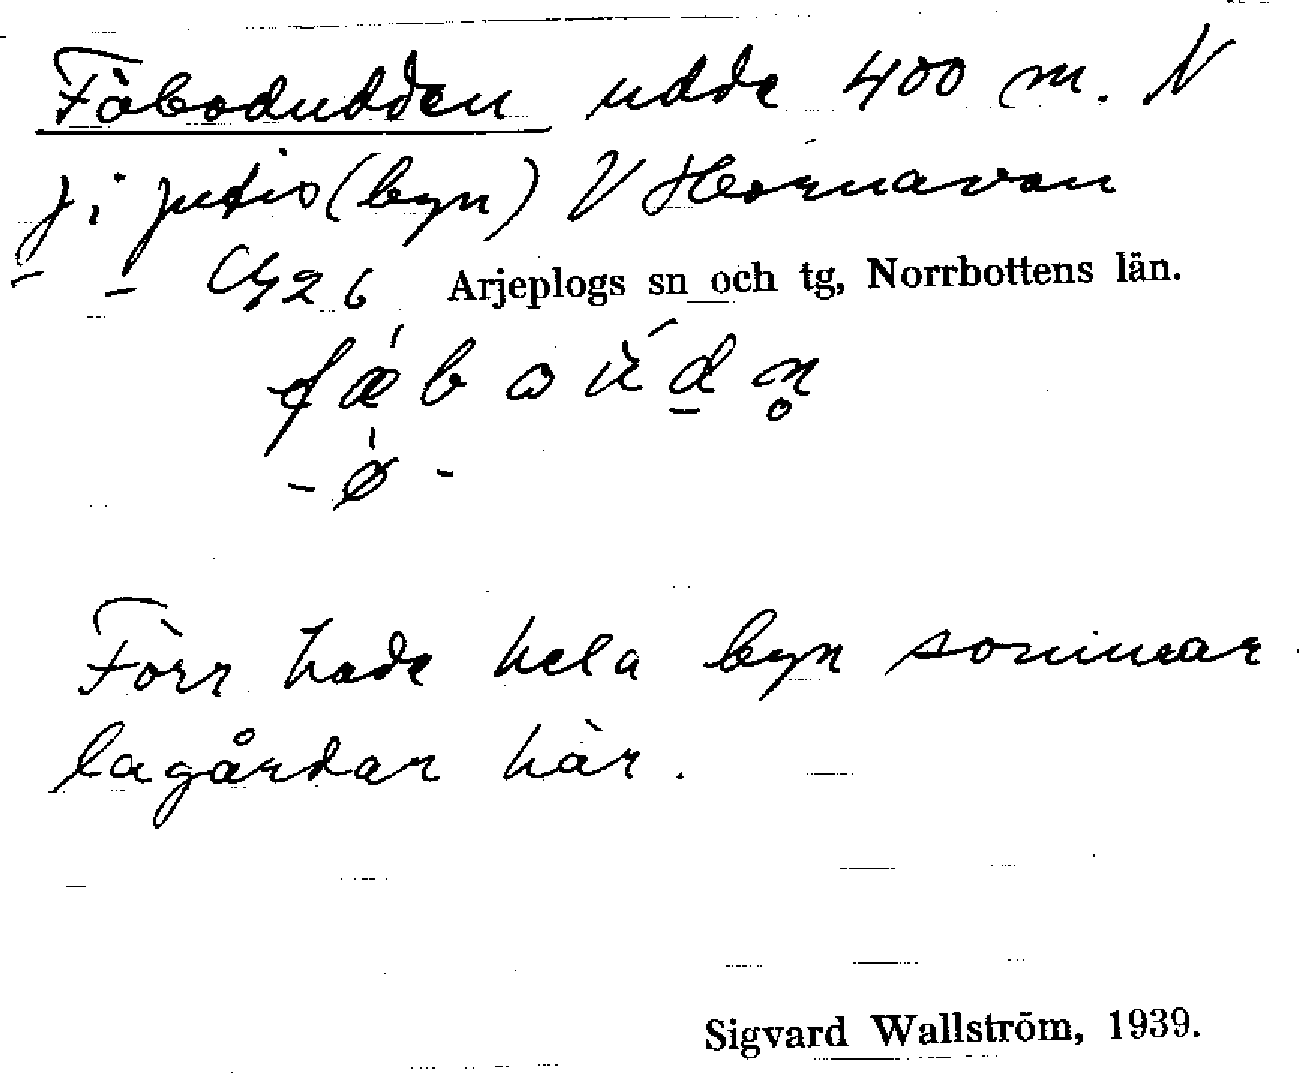 Fäbodudden udde 400 m. N
j i Jutis (byn) V Hornavan
Cg 26 Arjeplogs sn och tg, Norrbottens län.
Förr hade hela byn sommar
lagårdar här.
Sigvard Wallström, 1939.